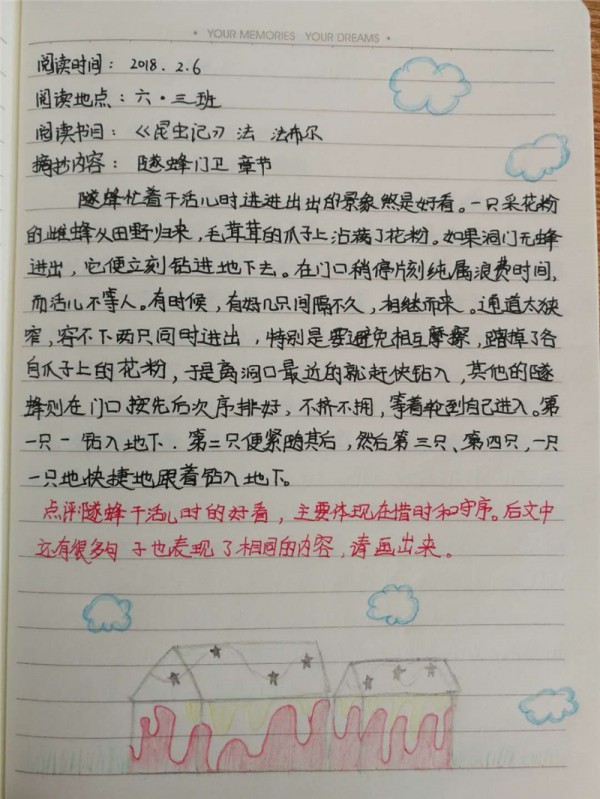 YOUR MEMORIES YOUR DREAMS
阅读时间：2018.2.6
阅读地点：六·三班
阅读书目：《昆虫记》 法 法布尔
摘抄内容：隧蜂门卫 章节
隧蜂忙着干活儿时进进出出的景象煞是好看。一只采花粉
的雌蜂从田野归来，毛茸茸的爪子上沾满了花粉。如果洞门无蜂
进出，它便立刻钻进地下去。在门口稍停片刻纯属浪费时间，
而活儿不等人。有时候，有好几只间隔不久，相继而来。通道太狭
窄，容不下两只同时进出，特别是要避免相互摩擦，蹭掉了各
自爪子上的花粉，于是离洞口最近的就赶快钻入，其他的隧
蜂则在门口按先后次序排好，不挤不拥，等着轮到自己进入。第
一只一钻入地下．第二只便紧随其后，然后第三只、第四只，一只
一只地快捷地跟着钻入地下。
点评：隧蜂干活儿时的好看，主要体现在惜时和守序。后文中
还有很多句子也表现了相同的内容，请画出来。